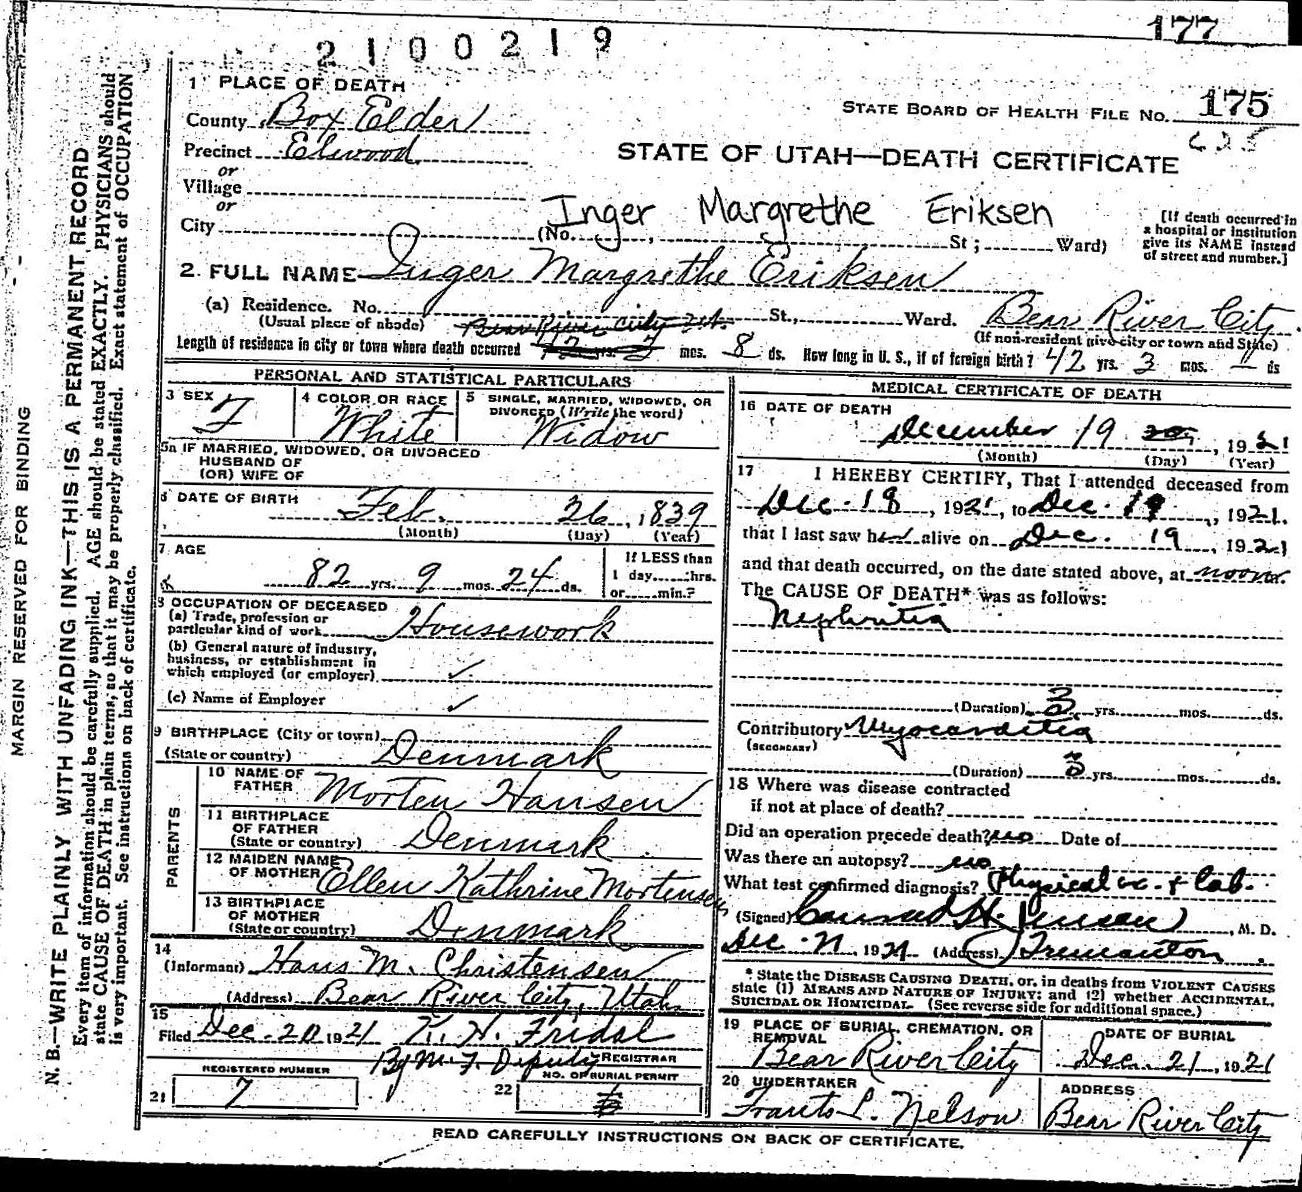 177
2100219
1 PLACE OF DEATH
STATE BOARD OF HEALTH FILE No. 175
County Box Elder
625
Precinct Elwood
STATE OF UTAH—DEATH CERTIFICATE
or
Village
or
Inger Margrethe Eriksen
City (No. , St; Ward)
[If death occurred in
a hospital or institution
give its NAME instead
of street and number.]
2. FULL NAME Inger Margrethe Eriksen
(a) Residence. No. St., Ward. Bear River City
(Usual place of abode) Bear River City Ut.
(If non-resident give city or town and State)
Length of residence in city or town where death occurred 42 yrs. 3 mos. 8 ds. How long in U. S., if of foreign birth? 42 yrs. 3 mos. ds
PERSONAL AND STATISTICAL PARTICULARS
3 SEX F
4 COLOR OR RACE White
5 SINGLE, MARRIED, WIDOWED, OR
DIVORCED (Write the word)
Widow
5a IF MARRIED, WIDOWED, OR DIVORCED
HUSBAND OF
(OR) WIFE OF
6 DATE OF BIRTH Feb. 26, 1839
(Month) (Day) (Year)
7 AGE
82 yrs. 9 mos. 24 ds.
If LESS than
1 day......hrs.
or......min.?
8 OCCUPATION OF DECEASED
(a) Trade, profession or
particular kind of work Housework
(b) General nature of industry,
business, or establishment in
which employed (or employer) ✓
(c) Name of Employer ✓
9 BIRTHPLACE (City or town)
(State or country) Denmark
PARENTS
10 NAME OF
FATHER Morten Hansen
11 BIRTHPLACE
OF FATHER
(State or country) Denmark
12 MAIDEN NAME
OF MOTHER Ellen Kathrine Mortensen
13 BIRTHPLACE
OF MOTHER
(State or country) Denmark
14
(Informant) Hans M. Christensen
(Address) Bear River City, Utah
15
Filed Dec. 20 1921 K. H. Fridal
By M. F. Deputy REGISTRAR
REGISTERED NUMBER
21 7
NO. OF BURIAL PERMIT
22
MEDICAL CERTIFICATE OF DEATH
16 DATE OF DEATH
December 19 20, 1921
(Month) (Day) (Year)
17 I HEREBY CERTIFY, That I attended deceased from
Dec. 18, 1921, to Dec. 19, 1921.
that I last saw her alive on Dec. 19, 1921
and that death occurred, on the date stated above, at noon.
The CAUSE OF DEATH* was as follows:
Nephritis
(Duration) 3 yrs. mos. ds.
Contributory Myocarditis
(SECONDARY)
(Duration) 3 yrs. mos. ds.
18 Where was disease contracted
if not at place of death?
Did an operation precede death? no Date of
Was there an autopsy? no
What test confirmed diagnosis? Physical ex. + Lab.
(Signed) Conrad H. Jensen, M. D.
Dec. 21 1921 (Address) Tremonton.
* State the DISEASE CAUSING DEATH, or, in deaths from VIOLENT CAUSES
state (1) MEANS AND NATURE OF INJURY; and (2) whether ACCIDENTAL,
SUICIDAL OR HOMICIDAL. (See reverse side for additional space.)
19 PLACE OF BURIAL, CREMATION, OR
REMOVAL
Bear River City
DATE OF BURIAL
Dec. 21, 1921
20 UNDERTAKER
Frants L. Nelson
ADDRESS
Bear River City
READ CAREFULLY INSTRUCTIONS ON BACK OF CERTIFICATE.
MARGIN RESERVED FOR BINDING
N. B.—WRITE PLAINLY WITH UNFADING INK—THIS IS A PERMANENT RECORD
Every item of information should be carefully supplied. AGE should be stated EXACTLY. PHYSICIANS should
state CAUSE OF DEATH in plain terms, so that it may be properly classified. Exact statement of OCCUPATION
is very important. See instructions on back of certificate.